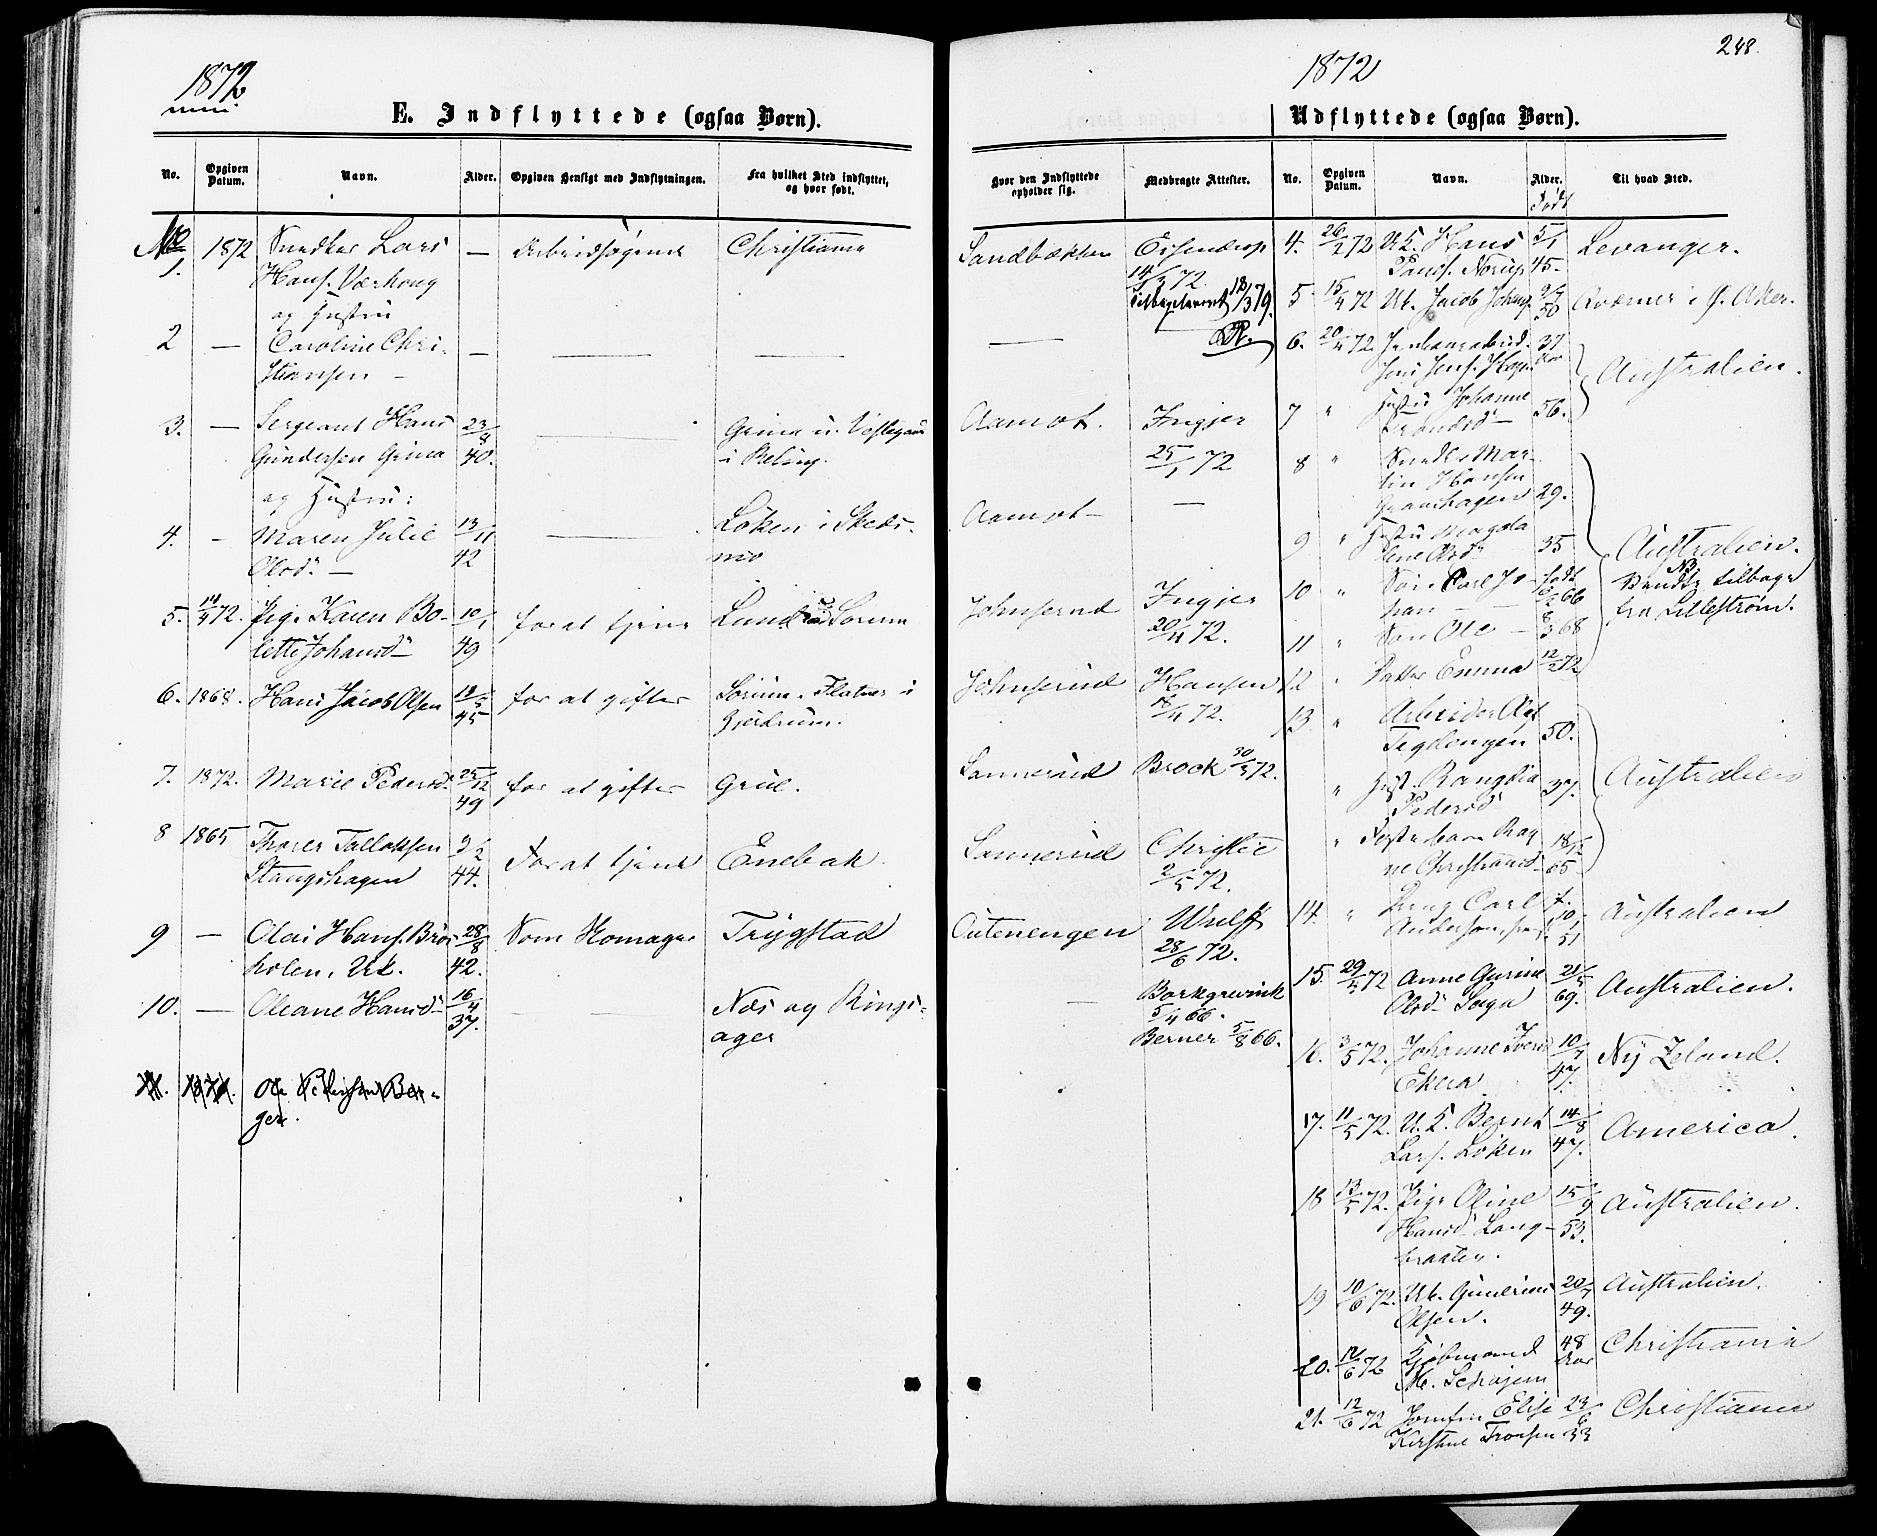 1872
E. Indflyttede (ogsaa Børn).
No.
Opgiven Datum.
Navn.
Alder.
Opgiven Hensigt med Indflytningen.
Fra hvilket Sted indflyttet, og hvor født.
No 1. 1872 Snedker Lars — Arbeidsøgende Christiania
Hans.
og Hustru
2 — Caroline Chri- — — —
stiansen —
3. — Sergeant Hans 23/8 — Grina u. 
Gundersen Grina 40. i
og Hustru:
4. - Maren Julie 13/11 — Løken i Skeds-
Olsd. — 42 mo
5. 14/4 72. Pige Karen Bo- 10/1 for at tjene Lund Sørum
lette Johansd. 49
6. 1868. Hans Jacob Olsen 13/5 for at gifte Sørum. Flatner i
45 Gjerdrum.
7. 1872. Marie Pedersd. 25/12 for at gifte Grue.
49
8 1865 Thorer Tallaksen 3/2 For at tjene Enebak.
Stangshagen 44.
9 — Olai Hans. 28/8 Som Trygstad
holen, Uk. 42.
10. — Oleane Hansd. 16/4 — Næs og Rings-
37. ager
11. Ole Pedersen Ber-
ger.
248.
1872
Udflyttede (ogsaa Børn).
Hvor den Indflyttede opholder sig.
Medbragte Attester.
No.
Opgiven Datum.
Navn.
Alder.
Født
Til hvad Sted.
Sandbækken
14/3 72.
18/3 79.
—
Aamot. Ingjer
25/1 72
Aamot — —
Johnserud Ingjer
20/4 72.
Johnserud Hansen
18/4 72.
Sannerud Brock 30/3 72.
Sannerud Christie
2/5 72.
Wulff
28/6 72.
— Borkgrevink
5/4 66.
Berner 5/8 66.
4. 26/2 72 U.K. Hans 5/1 Levanger.
45.
5 15/4 72 Uk. Jacob Johns. 9/7 Kværner i Ø. Aker.
50
6. 20/4 72 37 Aar
Jens. Australien.
7 " Hustru Johanne 56.
8 " Snedker Mar-
tin Hansen
Granhagen 29.
9 " Hustru Magda
lene Olsd. 35 Australien.
10 " Søn Carl Jo- født NB
han — 66 Vendte tilbage
11 " Søn Ole — 8/3 68 fra Lillestrøm.
12 " Datter Emma 12/2 72
13 " Arbeider
Tegdengen 50.
" Hust. Rangdia 37. Australien
Pedersd.
" Fosterbarn Rag
ne Christiansd. 65
14. " Dreng Carl f. 10/1 Australien
Andersen 51
15. 29/4 72 Anne Gurine 21/5 Australien.
Olsd. 69.
16. 3/5 72. Johanne Iversd. 10/7 Ny Zeland.
Ekera 47.
17. 11/5 72. U.K. Bernt 14/8 America.
Lars. Løken 47.
18 13/5 72. Pige Oline 15/9 Australien.
Hansd. Lang- 53.
braaten.
19 10/6 72. Uk. Gunerius 20/7 Australien.
Olsen. 49.
20. 12/6 72 Kjøbmand 48 Aar Christiania
M. Schøjen
21. 12/6 72 Jomfru Elise 23/6 Christiania
Kirstine Tronsen 33